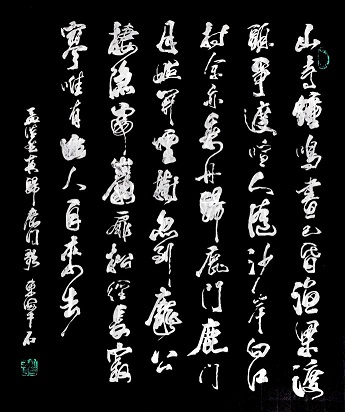 山寺鐘鳴晝已昏漁梁渡
頭爭渡喧人隨沙岸向江
村余亦乘舟歸鹿門鹿門
月照開煙樹忽到龐公
棲隱處巖扉松徑長寂
寥唯有幽人自來去
孟浩然夜歸鹿門歌 東海平石